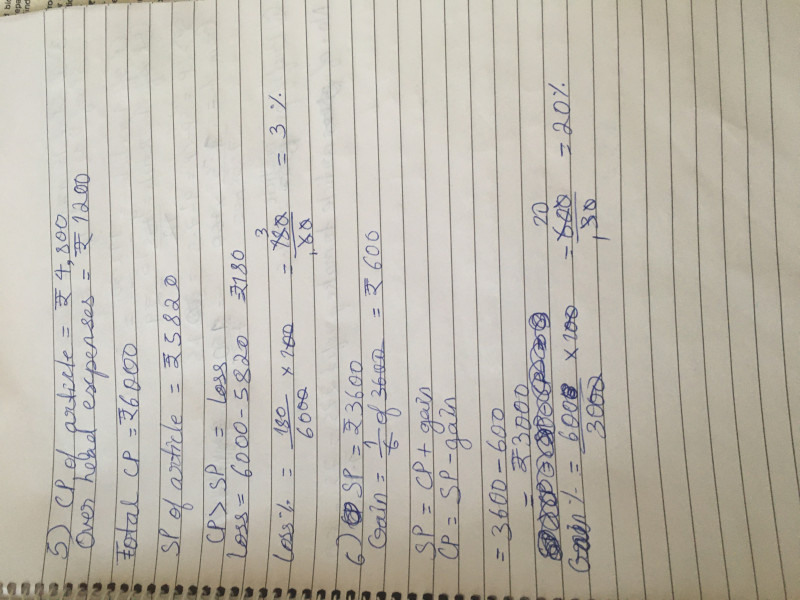 5) CP of article = ₹ 4,800
Over head expenses = ₹ 1200
Total CP = ₹6000
SP of article = ₹5820
CP > SP = Loss
Loss = 6000 - 5820 ₹180
Loss % = 180/6000 × 100 = 180/60 = 3 %
3
1
6) SP = ₹3600
Gain = 1/6 of 3600 = ₹600
SP = CP + gain
CP = SP - gain
= 3600 - 600
= ₹3000
Gain % = 600/3000 × 100 = 600/30 = 20%
20
1